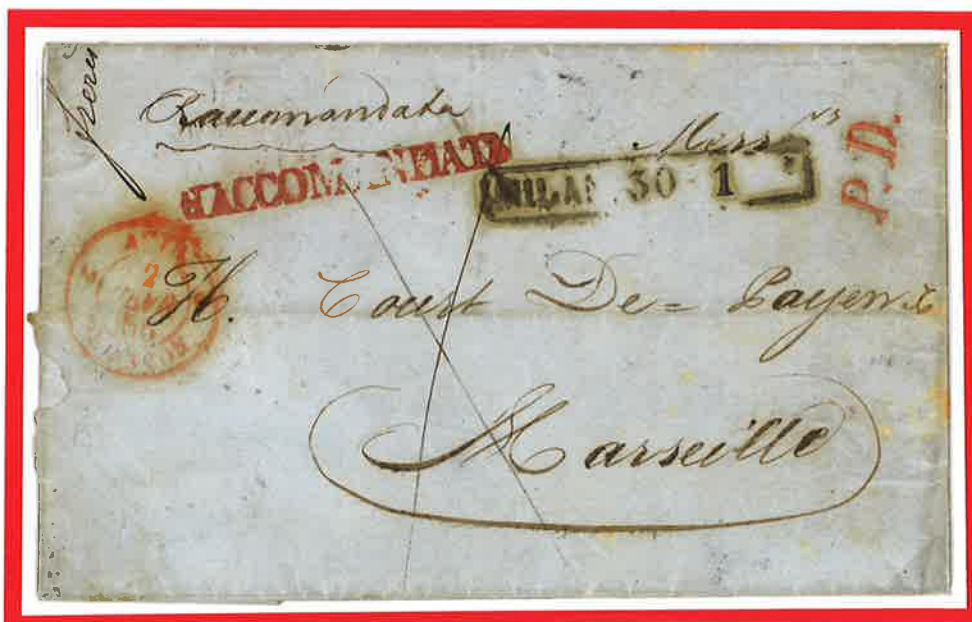 Raccomandata
Mess rs
RACCOMANDATA
MILAN 30 1
P.D.
2
H. Court De = Payen &
Marseille